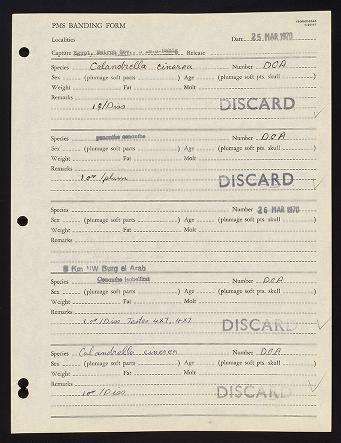 PMS BANDING FORM
Localities Date 25 MAR 1970
Capture Egypt, Release
Species Calandrella cinerea Number DOA
Sex (plumage soft parts ) Age (plumage soft pts. skull )
Weight Fat Molt
Remarks
1♂/Diss DISCARD
Species oenanthe oenanthe Number DOA
Sex (plumage soft parts ) Age (plumage soft pts. skull )
Weight Fat Molt
Remarks
1♂/plum DISCARD
Species Number 26 MAR 1970
Sex (plumage soft parts ) Age (plumage soft pts. skull )
Weight Fat Molt
Remarks
8 Km NW Burg el Arab
Species Oenanthe isabellina Number DOA
Sex (plumage soft parts ) Age (plumage soft pts. skull )
Weight Fat Molt
Remarks
1♂/Diss Testes 4x7, 4x7 DISCARD
Species Calandrella cinerea Number DOA
Sex (plumage soft parts ) Age (plumage soft pts. skull )
Weight Fat Molt
Remarks
1♂/Diss DISCARD